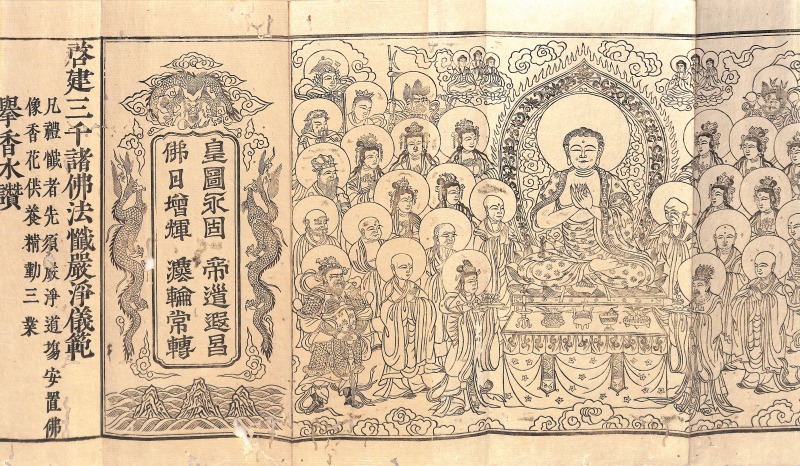 皇圖永固 帝道遐昌
佛日增輝 灋輪常轉
啓建三千諸佛法懺嚴淨儀範
凡禮懺者先須嚴淨道塲安置佛
像香花供養精勤三業
舉香水讚